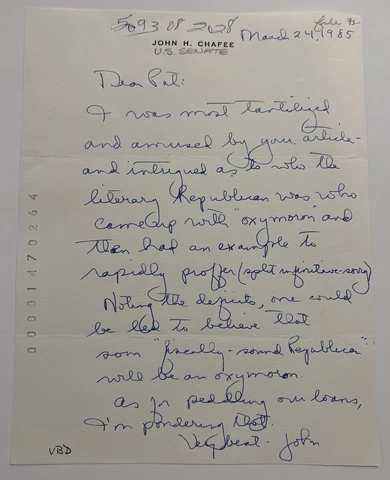 5093 08 2028
file 75-
March 24, 1985
JOHN H. CHAFEE
U.S. SENATE
Dear Pat:
I was most tantilized
and amused by your article-
and intrigued as to who the
literary Republican was who
came up with "oxymoron" and
then had an example to
rapidly proffer (split infinitive-sorry)
Noting the deficits, one could
be led to believe that
som "fiscally-sound Republican"
will be an oxymoron.
As for peddling our loans,
I'm pondering that.
Very best. John
VBD
00001470264